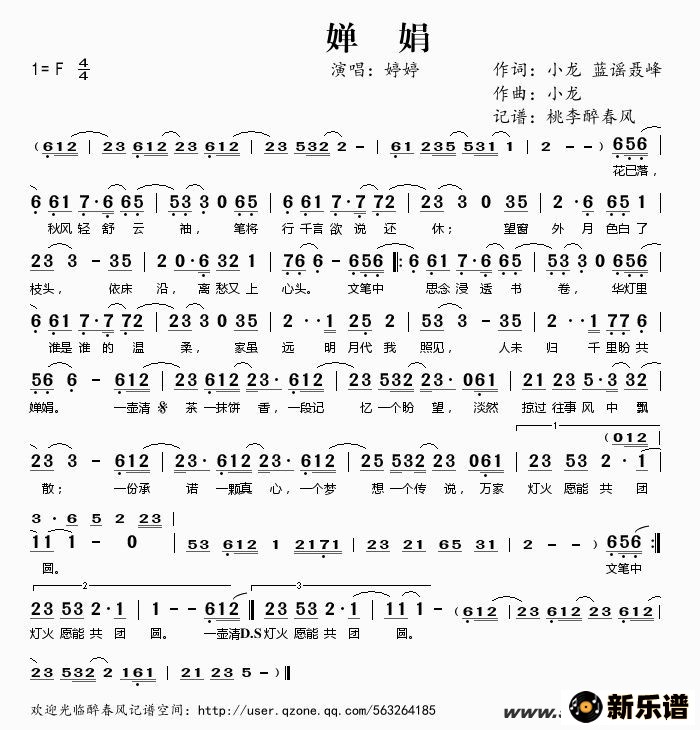 婵 娟
1=F 4/4 演唱：婷婷 作词：小龙 蓝谣聂峰
作曲：小龙
记谱：桃李醉春风
(612 | 23 612 23 612 | 23 532 2 - | 61 235 5311 | 2 - - ) 656 |
花已落，
6 61 7·6 65 | 53 3 0 65 | 61 7·7 72 | 23 3 0 35 | 2·6 65 1 |
秋风轻舒云 袖， 笔将 行千言欲说还 休； 望窗 外月色白了
23 3 - 35 | 20·6 32 1 | 76 6 - 656 |: 61 7·6 65 | 53 3 0 656 |
枝头， 依床 沿，离愁又上 心头。 文笔中 思念浸透书 卷， 华灯里
6 61 7·7 72 | 23 3 0 35 | 2··1 25 2 | 53 3 - 35 | 2··1 77 6 |
谁是谁的温 柔， 家虽 远明月代我 照见， 人未 归千里盼共
56 6 - 612 | 23·612 23·612 | 23 532 23·061 | 21 23 5·3 32 |
婵娟。 一壶清 茶一抹饼香，一段记 忆一个盼望，淡然 掠过往事风中飘
1
(012
23 3 - 612 | 23·612 23·612 | 25 532 23 061 | 23 53 2·1 |
散； 一份承 诺一颗真心，一个梦 想一个传说，万家 灯火愿能共团
3·6 5 2 23 |
11 1 - 0 | 53 612 1 2171 | 23 21 65 31 | 2 - - ) 656 :|
圆。 文笔中
2 3
23 53 2·1 | 1 - - 612 || 23 53 2·1 | 11 1 - (612 | 23 612 23 612 |
灯火愿能共团 圆。 一壶清D.S灯火愿能共团 圆。
23 532 2 161 | 21 23 5 - ) ||
欢迎光临醉春风记谱空间：http://user.qzone.qq.com/563264185
www. 新乐谱